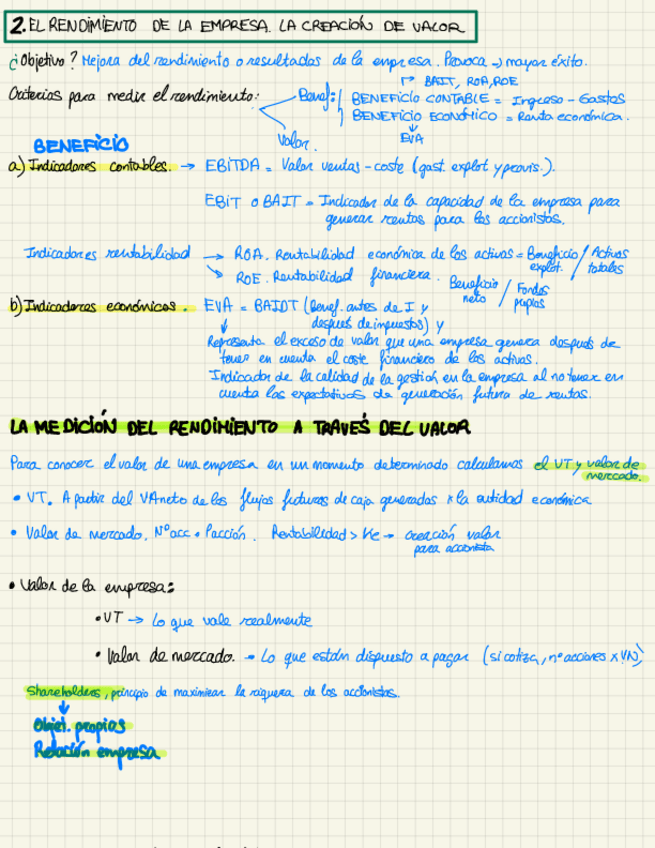 2. EL RENDIMIENTO DE LA EMPRESA. LA CREACIÓN DE VALOR
¿Objetivo? Mejora del rendimiento o resultados de la empresa. Provoca → mayor éxito.
→ BAIT, ROA, ROE
Criterios para medir el rendimiento:
Benef:
BENEFICIO CONTABLE = Ingreso - Gastos
BENEFICIO ECONÓMICO = Renta económica.
EVA
Valor.
BENEFICIO
a) Indicadores contables. → EBITDA = Valor ventas - coste (gast. explot y provis.).
EBIT o BAIT = Indicador de la capacidad de la empresa para
generar rentas para los accionistas.
Indicadores rentabilidad → ROA. Rentabilidad económica de los activos = Beneficio explot. / Activos totales
→ ROE. Rentabilidad financiera. Beneficio neto / Fondos propios
b) Indicadores económicos. EVA = BAIDT (Benef. antes de I y
después de impuestos) y
Representa el exceso de valor que una empresa genera después de
tener en cuenta el coste financiero de los activos.
Indicador de la calidad de la gestión en la empresa al no tener en
cuenta las expectativas de generación futura de rentas.
LA MEDICIÓN DEL RENDIMIENTO A TRAVÉS DEL VALOR
Para conocer el valor de una empresa en un momento determinado calculamos el VT y valor de
mercado.
• VT. A partir del VAneto de los flujos futuros de caja generados x la entidad económica
• Valor de mercado. Nº acc • P acción. Rentabilidad > Ke → creación valor
para accionista
• Valor de la empresa:
• VT → Lo que vale realmente
• Valor de mercado. → Lo que están dispuesto a pagar (si cotiza, nº acciones x VN)
Shareholders, principio de maximizar la riqueza de los accionistas.
Objet. propios
Relación empresa